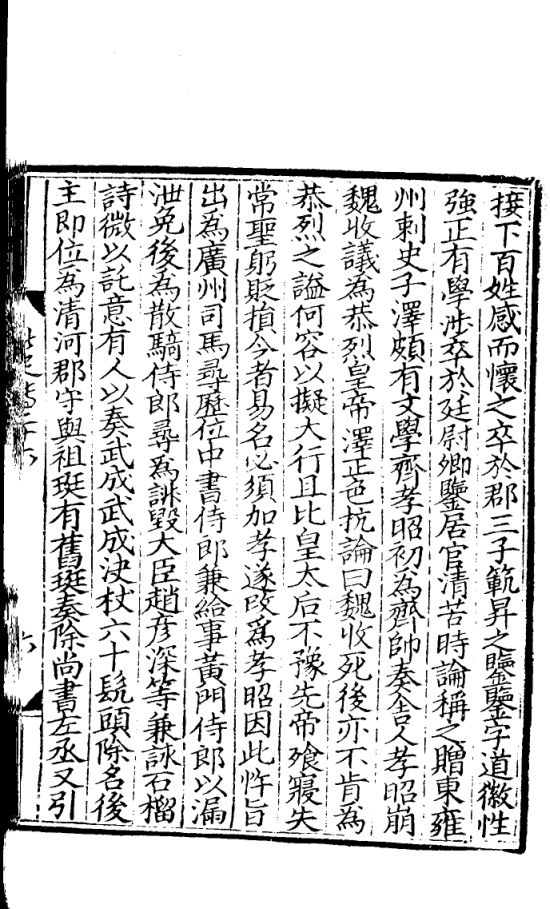 接下百姓感而懷之卒於郡三子範昇之鑒鑒字道徽性
強正有學涉卒於廷尉卿鑒居官清苦時論稱之贈東雍
州刺史子澤頗有文學齊孝昭初為齊帥奏舍人孝昭崩
魏收議為恭烈皇帝澤正色抗論曰魏收死後亦不肯為
恭烈之謚何容以擬大行且比皇太后不豫先帝飱寢失
常聖躬貶損今者易名必須加孝遂改為孝昭因此忤旨
出為廣州司馬尋歷位中書侍郎兼給事黃門侍郎以漏
泄免後為散騎侍郎尋為誹毀大臣趙彦深等兼詠石榴
詩微以託意有人以奏武成武成決杖六十髡頭除名後
主即位為清河郡守與祖珽有舊珽奏除尚書左丞又引